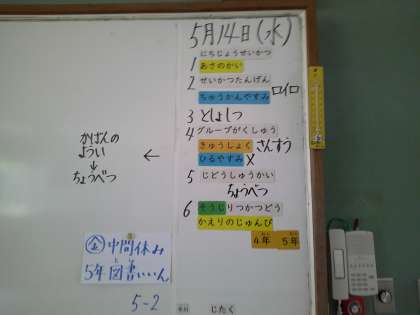 5月14日(水)
にちじょうせいかつ
1 あさのかい
2 せいかつたんげん
ちゅうかんやすみ ロイロ
3 としょしつ
4 グループがくしゅう
きゅうしょく さんすう
ひるやすみ ×
5 じどうしゅうかい
ちょうべつ
6 そうじ りつかつどう
かえりのじゅんび
4年 5年
じたく
かばんの
ようい
↓
ちょうべつ
←
金 中間休み
5年図書いいん
5-2